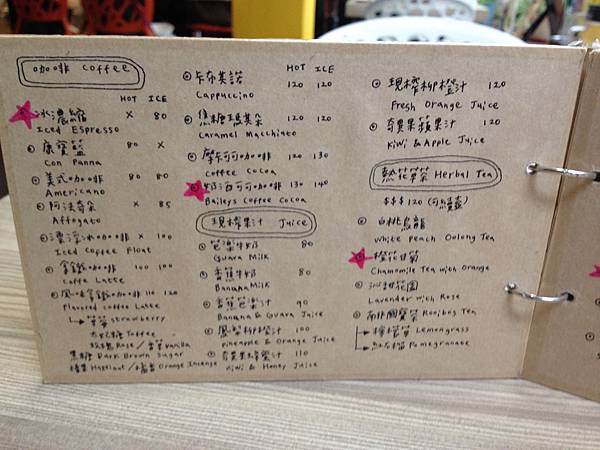 咖啡 coffee
HOT ICE
冰濃縮 × 80
Iced Espresso
康寶藍 80 ×
Con Panna
美式咖啡 80 80
Americano
阿法奇朵 × 85
Affogato
漂浮冰咖啡 × 100
Iced Coffee Float
拿鐵咖啡 100 100
Caffe Latte
風味拿鐵咖啡 110 120
Flavored coffee Latte
草莓 strawberry
太妃糖 Toffee
玫瑰 Rose / 香草 Vanilla
黑糖 Dark Brown Sugar
榛果 Hazelnut / 橘香 Orange Incense
HOT ICE
卡布其諾 120 120
Cappuccino
焦糖瑪其朵 120 120
Caramel Macchiato
摩卡可可咖啡 120 130
coffee Cocoa
奶酒可可咖啡 130 140
Baileys Coffee Cocoa
現榨果汁 Juice
芭樂牛奶 80
Guava Milk
香蕉牛奶 80
Banana Milk
香蕉芭樂汁 90
Banana & Guava Juice
鳳梨柳橙汁 100
Pineapple & Orange Juice
奇異果蜂蜜汁 110
KiWi & Honey Juice
現榨柳橙汁 120
Fresh Orange Juice
奇異果蘋果汁 120
KiWi & Apple Juice
熱花草茶 Herbal Tea
$$$ 120 (可續壺)
白桃烏龍
White Peach Oolong Tea
橙花甘菊
Chamomile Tea with Orange
花園
Lavender with Rose
南非國寶茶 Rooibos Tea
檸檬草 Lemongrass
紅石榴 Pomegranate